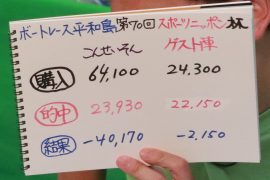 ボートレース平和島 第70回 スポーツニッポン杯
こんせいそん ゲスト陣
購入 64,100 24,300
的中 23,930 22,150
結果 -40,170 -2,150